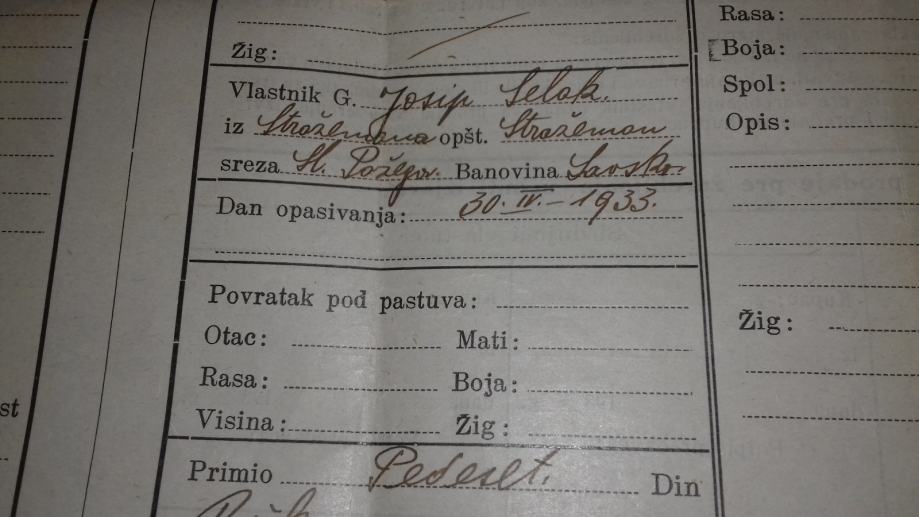 Žig:
Vlastnik G. Josip Selak.
iz Stražemana opšt. Stražeman
sreza Sl. Požega. Banovina Savska.
Dan opasivanja: 30. IV. – 1933.
Povratak pod pastuva:
Otac: Mati:
Rasa: Boja:
Visina: Žig:
Primio Pedeset. Din
Rasa:
Boja:
Spol:
Opis:
Žig:
st